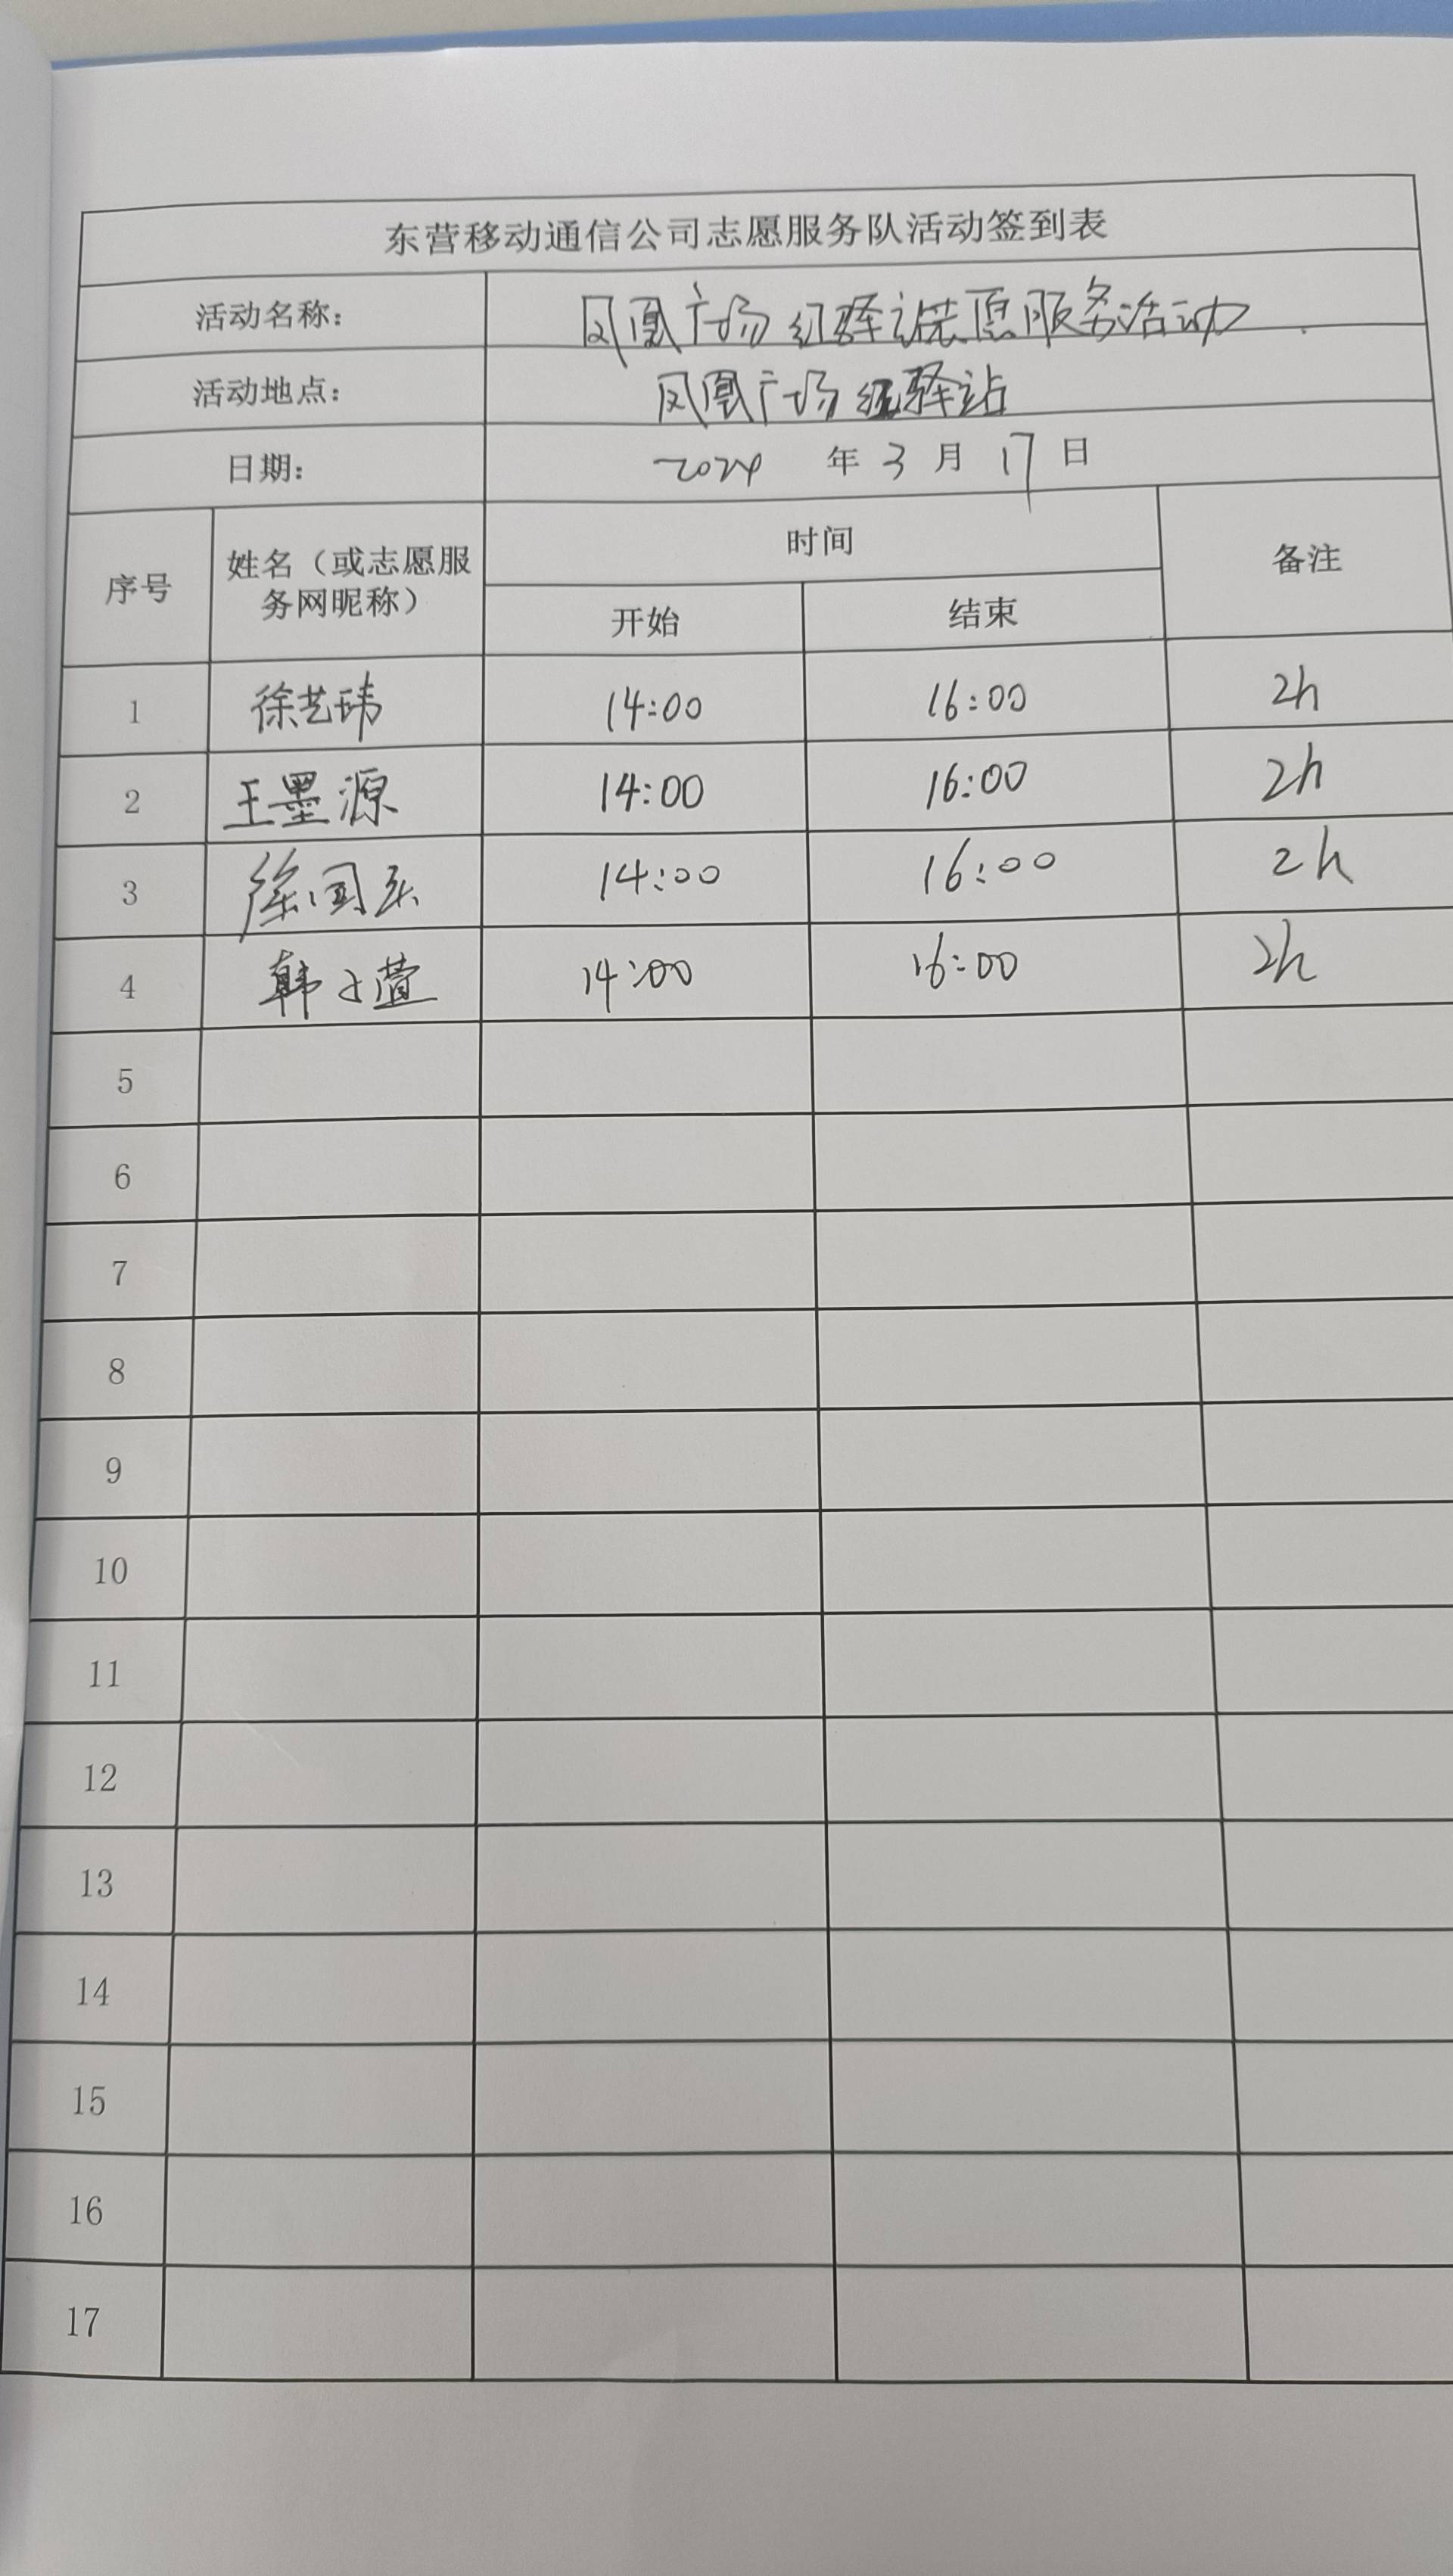 东营移动通信公司志愿服务队活动签到表
活动名称： 凤凰广场红驿站志愿服务活动
活动地点： 凤凰广场红驿站
日期： 2024 年 3 月 17 日
序号 姓名（或志愿服务网昵称） 时间 备注
开始 结束
1 徐艺玮 14:00 16:00 2h
2 王墨源 14:00 16:00 2h
3 徐国 14:00 16:00 2h
4 韩子萱 14:00 16:00 2h
5
6
7
8
9
10
11
12
13
14
15
16
17